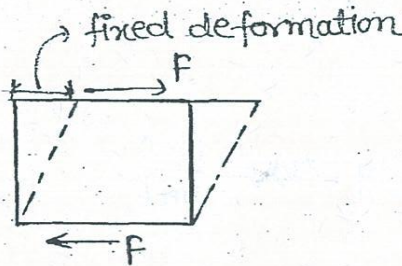 fixed deformation
F
F